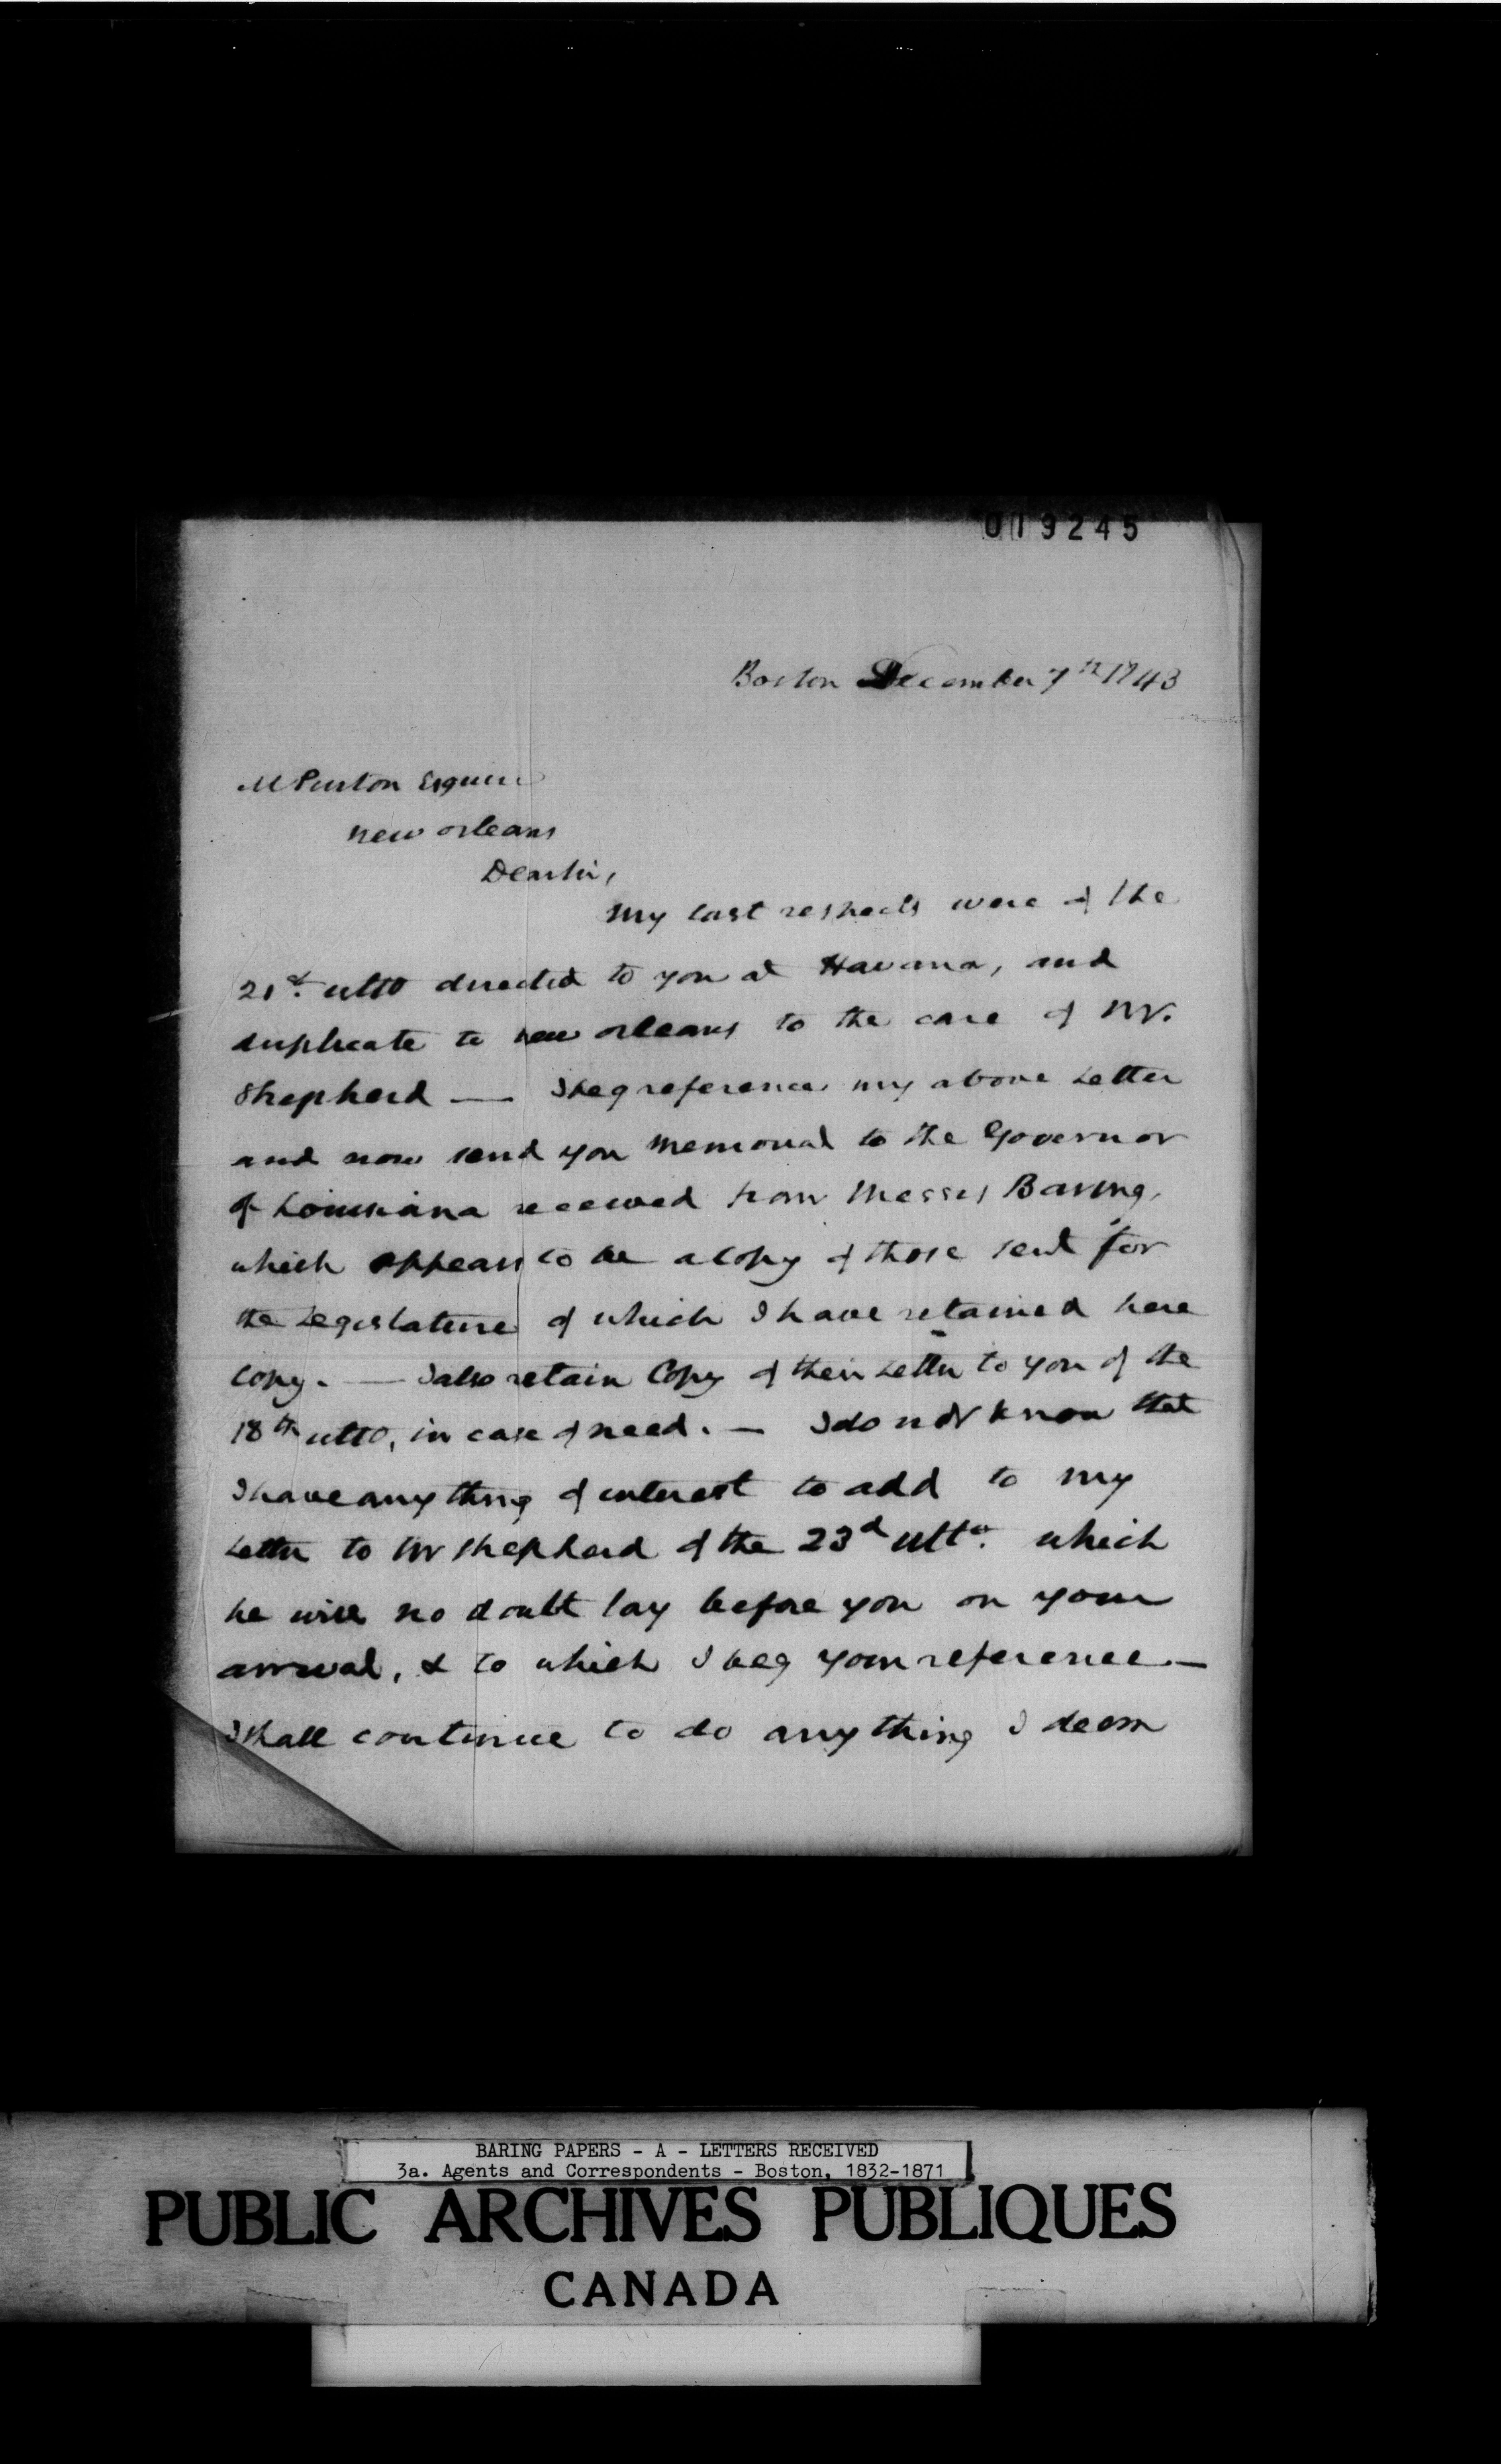 019245
Boston December 7th 1843
Esquire
New Orleans
Dear Sir,
My last respects were of the
21st ulto directed to you at Havana, and
duplicate to New Orleans to the care of Mr.
Shepherd — I beg reference my above Letter
and now send you Memorial to the Governor
of Louisiana received from Messrs Baring,
which appears to be a Copy of those sent for
the Legislature of which I have retained here
Copy. — I also retain Copy of their Letter to you of the
18th ulto, in case of need. — I do not know that
I have any thing of interest to add to my
Letter to Mr Shepherd of the 23d ulto. which
he will no doubt lay before you on your
arrival, & to which I beg your reference. —
I shall continue to do any thing I deem
BARING PAPERS - A - LETTERS RECEIVED
3a. Agents and Correspondents - Boston, 1832-1871
PUBLIC ARCHIVES PUBLIQUES
CANADA